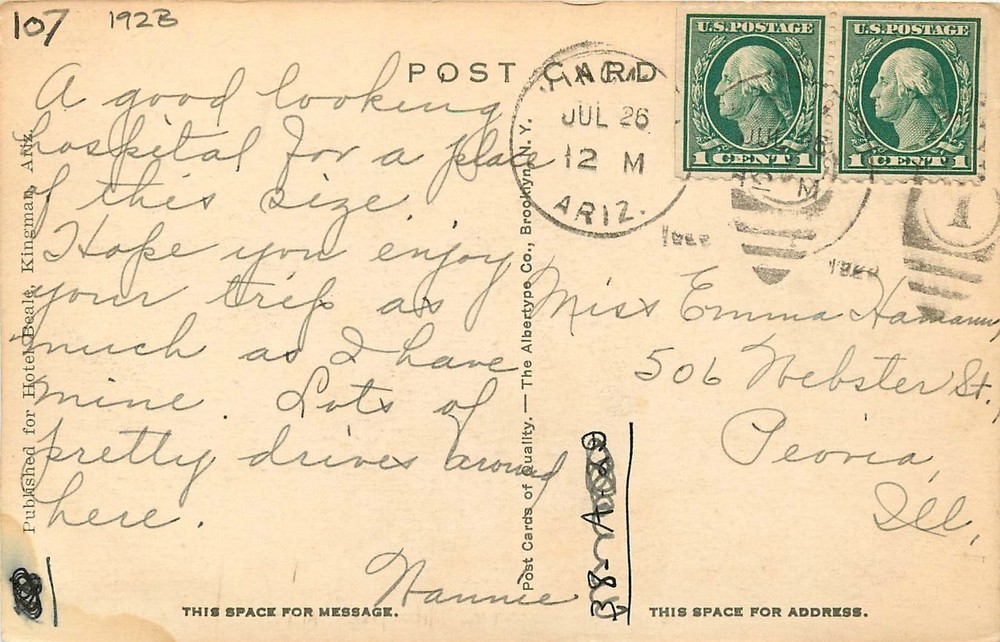 107 1923
POST CARD
JUL 26
12 M
ARIZ.
U.S. POSTAGE
1 CENT 1
U.S. POSTAGE
1 CENT 1
JUL 26
M
1
A good looking
hospital for a place
of this size.
Hope you enjoy
your trip as
much as I have
mine. Lots of
pretty drives around
here.
Nannie
Miss Emma Hamann,
506 Webster St.,
Peoria,
Ill,
Published for Hotel Beale, Kingman, Ariz.
Post Cards of Quality. — The Albertype Co., Brooklyn, N. Y.
THIS SPACE FOR MESSAGE.
THIS SPACE FOR ADDRESS.